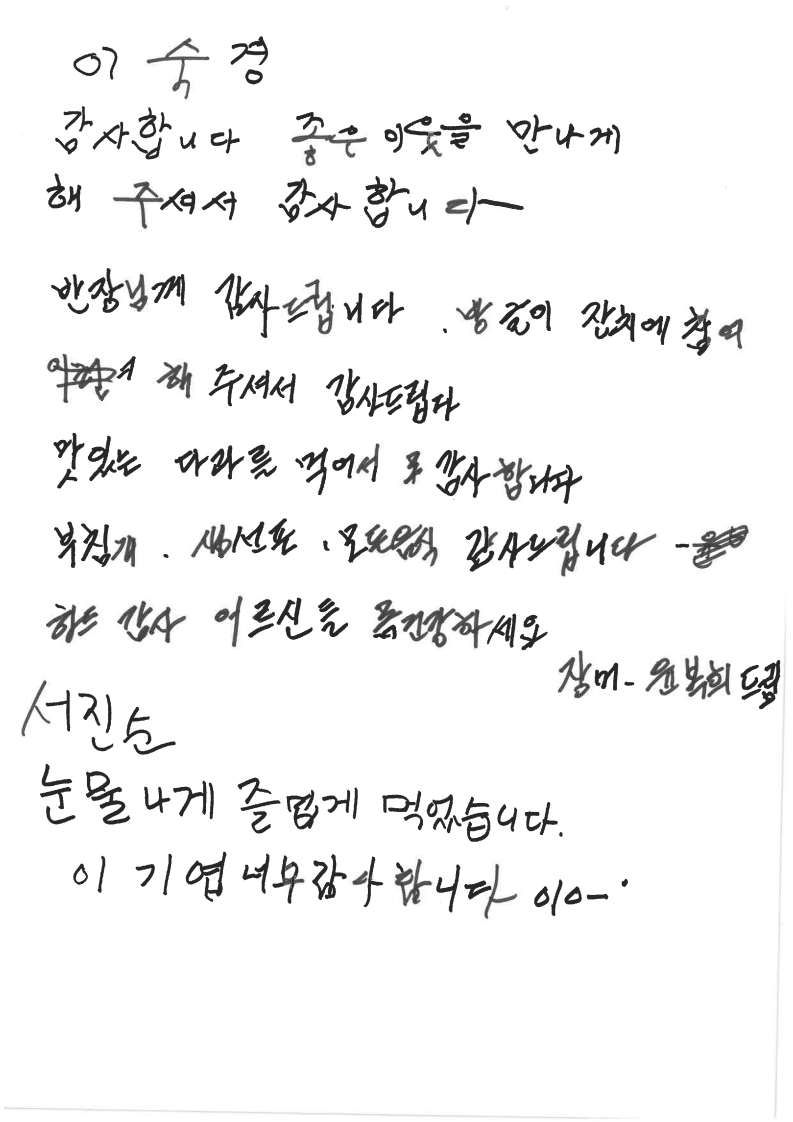 이 숙경
감사합니다 좋은 이웃을 만나게
해 주셔서 감사합니다
반장님께 감사드립니다. 잔치에 참여
해 주셔서 감사드립다
맛있는 다과를 먹어서 감사합니다
부침개. 생선포. 모듬음식 감사드립니다
감사 어르신들 건강하세요
장미- 윤복희드림
서진순
눈물나게 즐겁게 먹었습니다.
이기엽 너무감사합니다